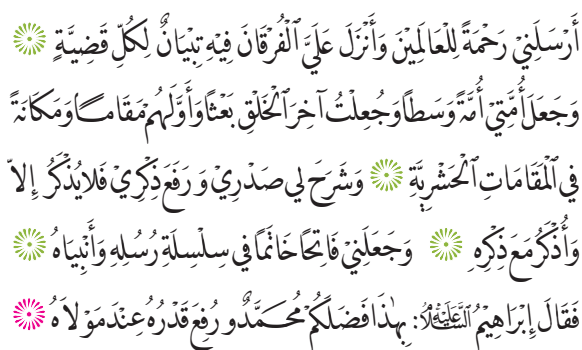 أَرْسَلَنِيْ رَحْمَةً لِلْعَالَمِيْنَ وَأَنْزَلَ عَلَيَّ ٱلْفُرْقَانَ فِيْهِ تِبْيَانٌ لِكُلِّ قَضِيَّةٍ ۞
وَجَعَلَ أُمَّتِيْ أُمَّةً وَسَطاً وَجُعِلْتُ آخِرَ ٱلْخَلْقِ بَعْثًا وَأَوَّلَهُمْ مَقَامًا وَمَكَانَةً
فِي ٱلْمَقَامَاتِ ٱلْحَشْرِيَّةِ ۞ وَشَرَحَ لِي صَدْرِيْ وَ رَفَعَ ذِكْرِيْ فَلَا يُذْكَرُ إِلاَّ
وَأُذْكَرُ مَعَ ذِكْرِهِ ۞ وَجَعَلَنِيْ فَاتِحًا خَاتَمًا فِي سِلْسِلَةِ رُسُلِهِ وَأَنْبِيَاهُ ۞
فَقَالَ إِبْرَاهِيْمُ عَلَيْهِ السَّلَامُ: بِهٰذَا فَضَلَكُمْ مُحَمَّدٌ و رُفِعَ قَدْرُهُ عِنْدَ مَوْلاَهُ ۞